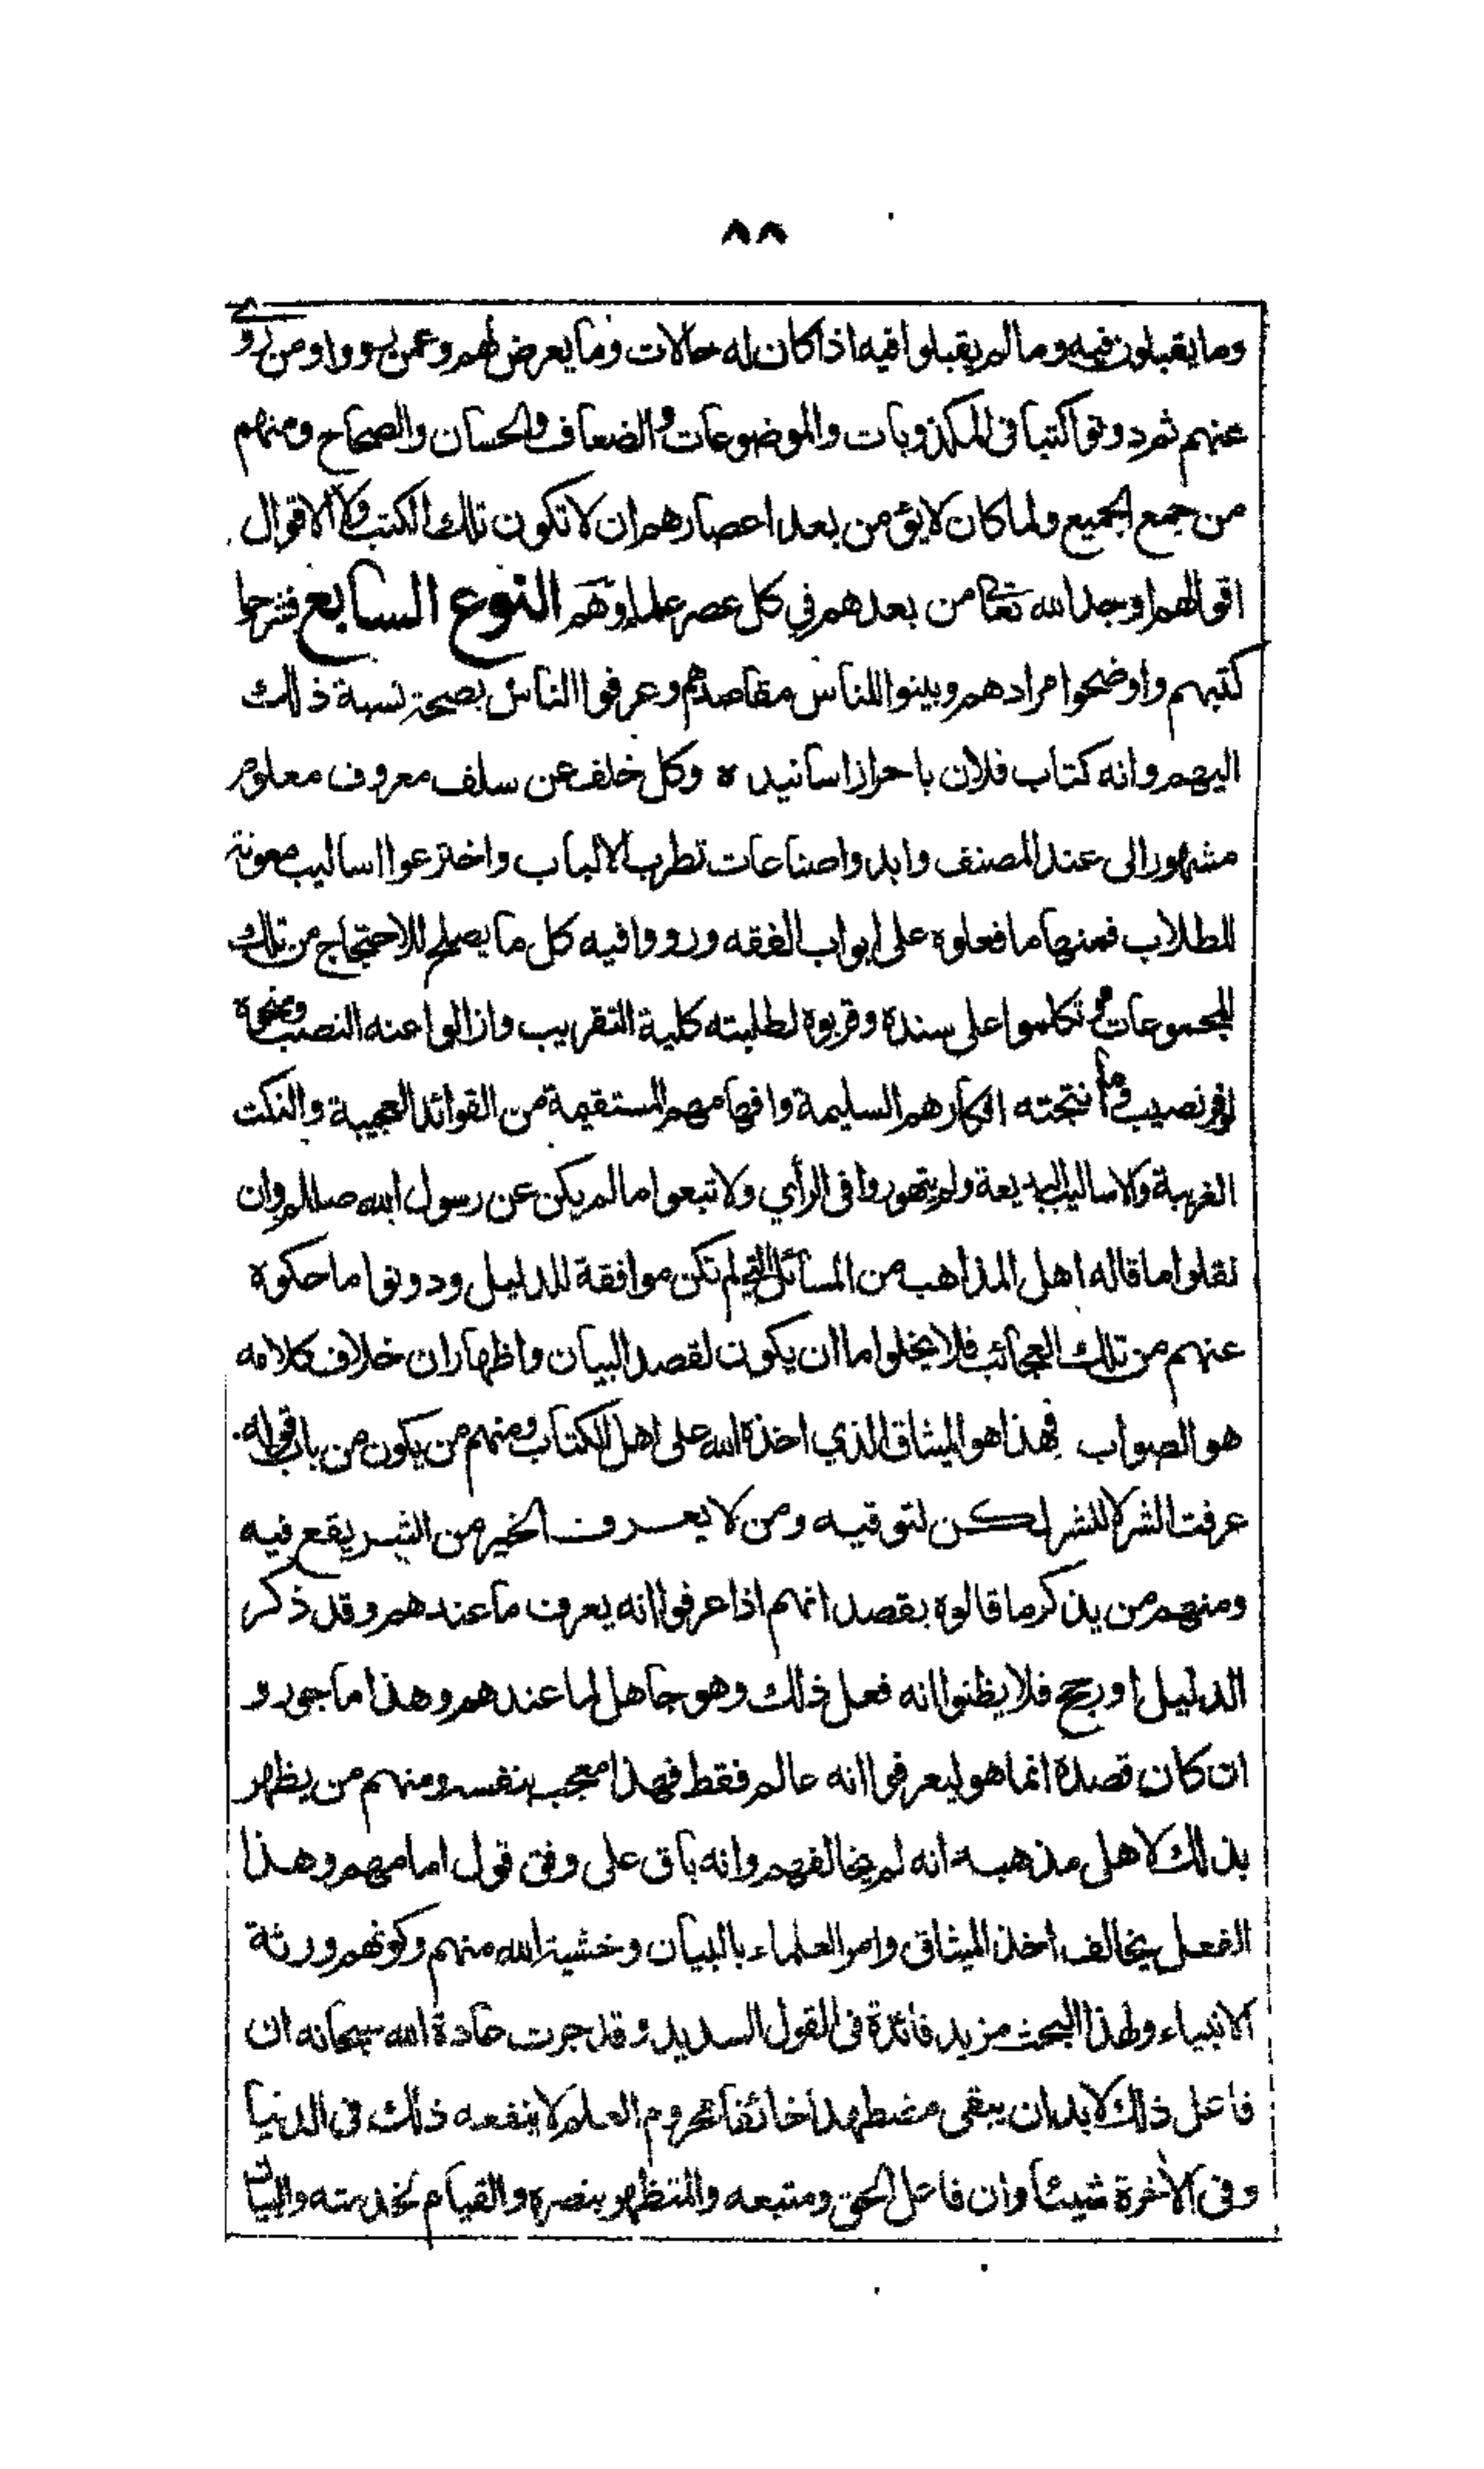 ٨٨
وما يقبلون فيه وما لم يقبلوا فيه اذا كان له حالات وما يعرض لهم وعمن رووا ومن روى
عنهم ثم دونوا كتبا فى المكذوبات والموضوعات والضعاف والحسان والصحاح ومنهم
من جمع الجميع ولما كان لا يؤمن بعد اعصارهم ان لا تكون تلك الكتب ولا الاقوال
اقوالهم اوجد الله تعا من بعدهم في كل عصر علماء وهم النوع السابع فشرحوا
كتبهم واوضحوا مرادهم وبينوا للناس مقاصدهم وعرفوا الناس بصحة نسبة ذلك
اليهم وانه كتاب فلان باحراز اسانيده وكل خلف عن سلف معروف معلوم
مشهور الى عند المصنف وابدوا صناعات تطرب الالباب واخترعوا اساليب معونة
للطلاب فمنها ما فعلوه على ابواب الفقه ورووا فيه كل ما يصلح للاحتجاج من تلك
المجموعات وتكلموا على سنده وقربوه لطلبته كلية التقريب وازالوا عنه النصب ومنحوه
اوفر نصيب وما انتجته افكارهم السليمة وافهامهم المستقيمة من الفوائد العجيبة والنكت
الغريبة والاساليب البديعة ولم يتهوروا فى الرأي ولا تبعوا ما لم يكن عن رسول الله صللم وان
نقلوا ما قاله اهل المذاهب من المسائل التي لم تكن موافقة للدليل ودونوا ما حكوه
عنهم من تلك العجائب فلا يخلوا ما ان يكون لقصد البيان واظهار ان خلاف كلامه
هو الصواب فهذا هو الميثاق الذي اخذه الله على اهل الكتاب ومنهم من يكون من باب قوله
عرفت الشر لا للشر لكن لتوقيه ومن لا يعرف الخير من الشر يقع فيه
ومنهم من يذكر ما قالوه بقصد انهم اذا عرفوا انه يعرف ما عندهم وقد ذكر
الدليل او رجح فلا يظنوا انه فعل ذلك وهو جاهل لما عندهم وهذا ماجور و
ان كان قصده انما هو ليعرفوا انه عالم فقط فهذا معجب بنفسه ومنهم من يظهر
بذلك لاهل مذهبه انه لم يخالفهم وانه باق على وفق قول امامهم وهذا
الفعل يخالف اخذ الميثاق وامر العلماء بالبيان وخشية الله منهم وكونهم ورثة
الانبياء ولهذا البحث مزيد فائدة فى القول السديد وقد جرت عادة الله سبحانه ان
فاعل ذلك لا بد ان يبقى مضطهدا خائفا محروم العلم لا ينفعه ذلك فى الدنيا
وفى الاخرة شيئا وان فاعل الحق ومتبعه والمتظهر بنصره والقيام بخدمته والبيان